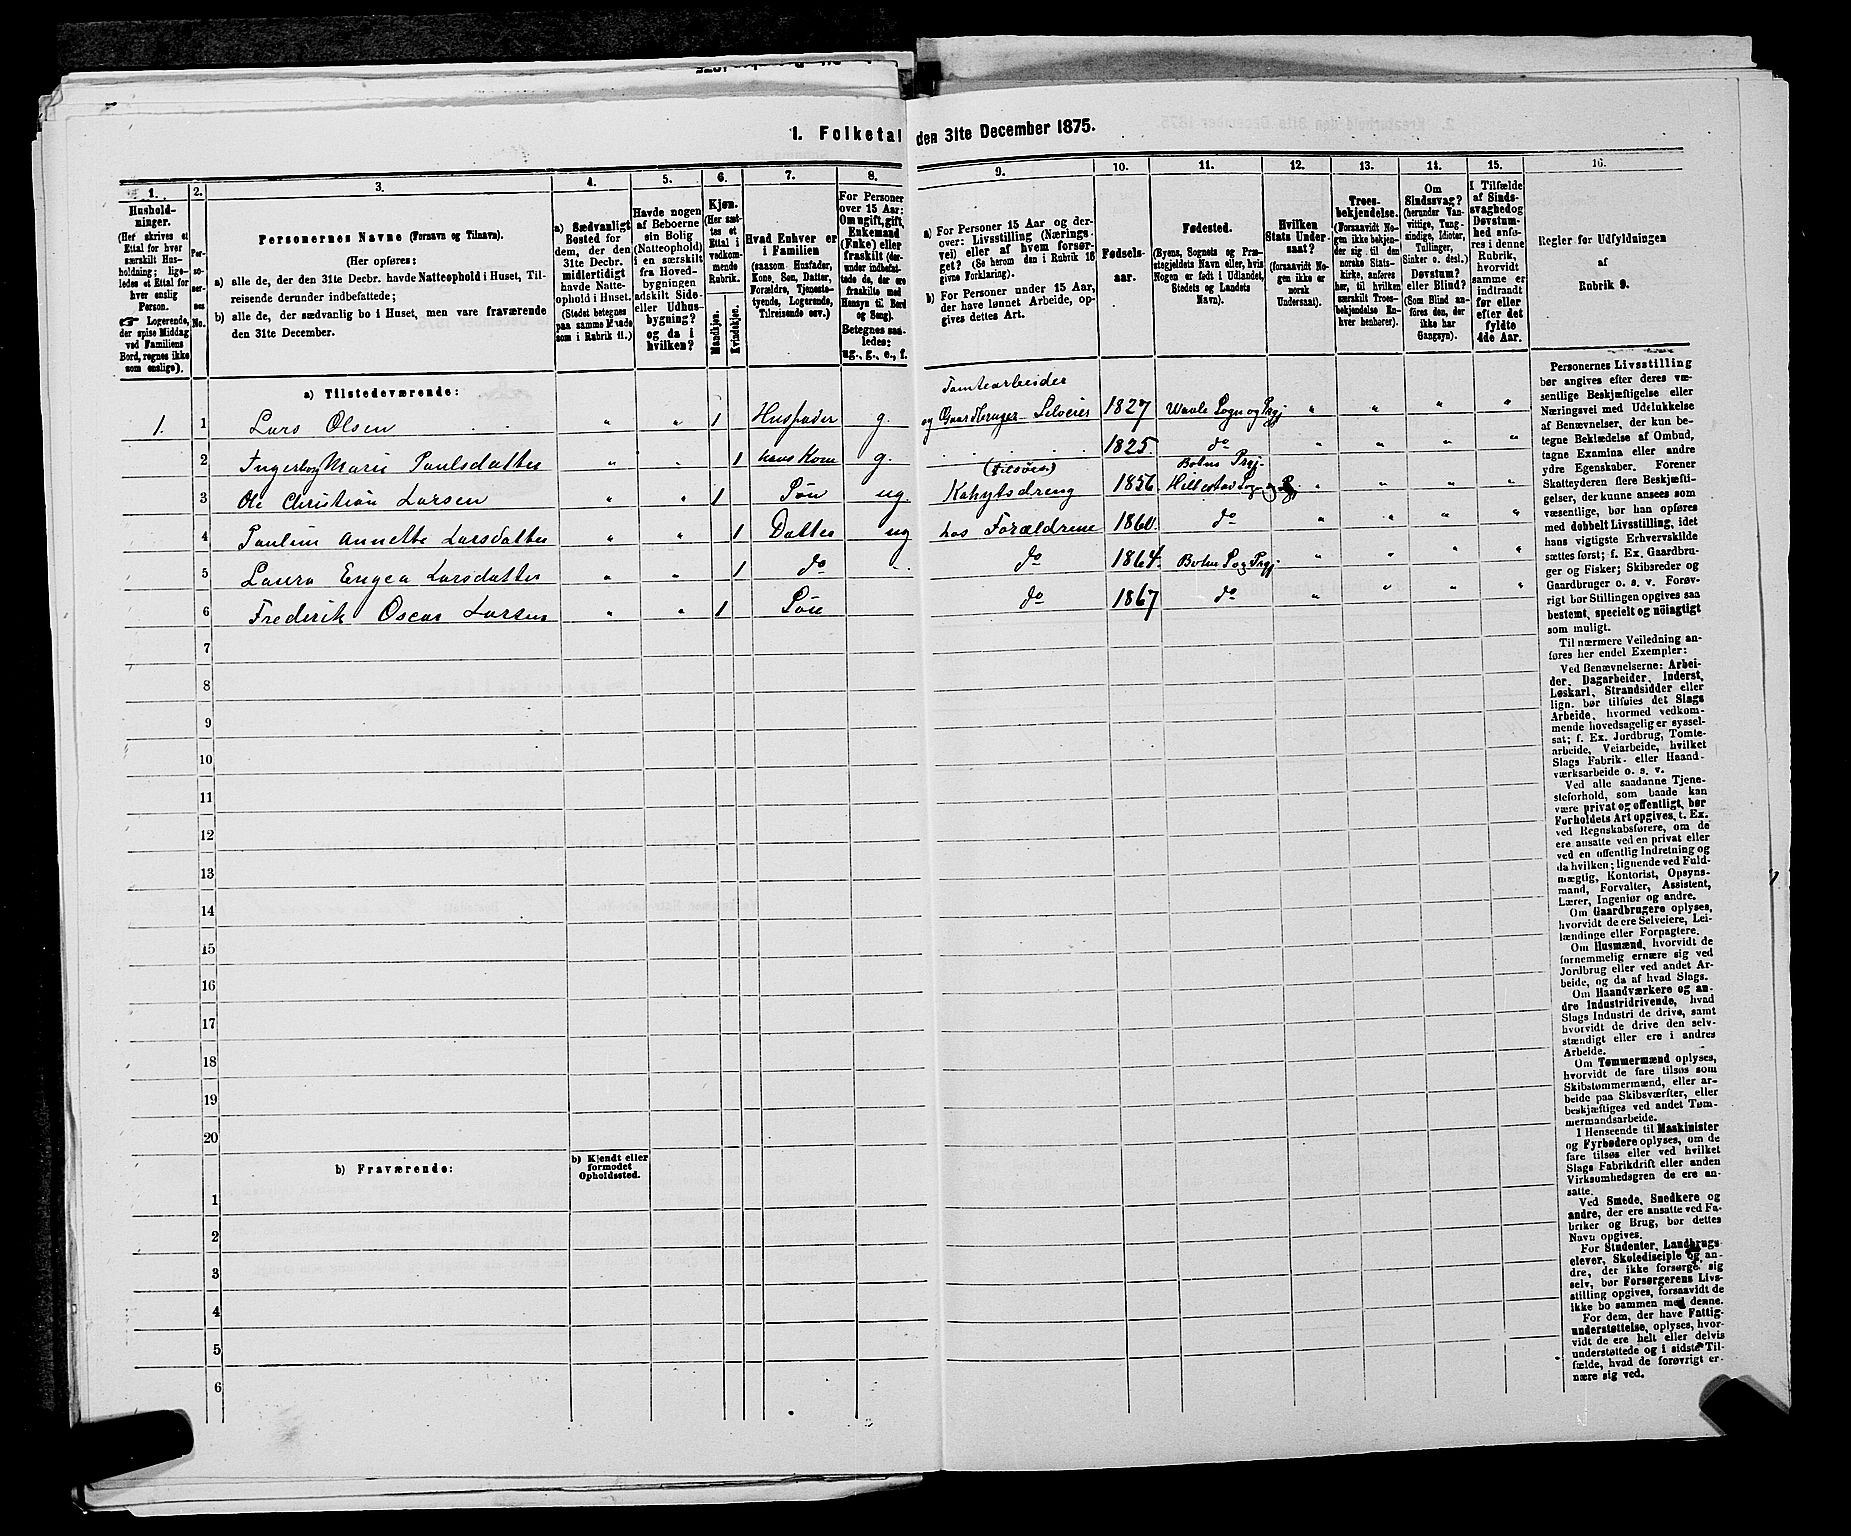 1. Folketal den 31te December 1875.
1.
2.
3.
4.
5.
6.
7.
8.
9.
10.
11.
12.
13.
14.
15.
16.
Hushold-
ninger.
(Her skrives et
Ettal for hver
særskilt Hus-
holdning; lige-
ledes et Ettal for
hver enslig
Person.
☞ Logerende,
der spise Middag
ved Familiens
Bord, regnes ikke
som enslige).
Per-
so-
ner-
nes
No.
Personernes Navne (Fornavn og Tilnavn).
(Her opføres:
a) alle de, der den 31te Decbr. havde Natteophold i Huset, Til-
reisende derunder indbefattede;
b) alle de, der sædvanlig bo i Huset, men vare fraværende
den 31te December.
a) Sædvanligt
Bosted for
dem, der den
31te Decbr.
midlertidigt
havde Natte-
ophold i Huset.
(Stedet betegnes
paa samme Maade
som i Rubrik 11.)
Havde nogen
af Beboerne
sin Bolig
(Natteophold)
i en særskilt
fra Hoved-
bygningen
adskilt Side-
eller Udhus-
bygning?
og da i
hvilken?
Kjøn.
(Her sæt-
tes et
Ettal i
vedkom-
mende
Rubrik.
Mandkjøn.
Kvindekjøn.
Hvad Enhver er
i Familien
(saasom Husfader,
Kone, Søn, Datter,
Forældre, Tjeneste-
tyende, Logerende,
Tilreisende osv.)
For Personer
over 15 Aar:
Om ugift, gift,
Enkemand
(Enke) eller
fraskilt (der-
under indbefat-
tede de, der ere
fraskilte med
Hensyn til Bord
og Seng).
Betegnes saa-
ledes:
ug., g., e., f.
a) For Personer 15 Aar og der-
over: Livsstilling (Nærings-
vei) eller af hvem forsør-
get? (Se herom den i Rubrik 16
givne Forklaring).
b) For Personer under 15 Aar,
der have lønnet Arbeide, op-
gives dettes Art.
Fødsels-
aar.
Fødested.
(Byens, Sognets og Præ-
stegjeldets Navn eller, hvis
Nogen er født i Udlandet,
Stedets og Landets
Navn).
Hvilken
Stats Under-
saat?
(forsaavidt No-
gen ikke er
norsk
Undersaat).
Troes-
bekjendelse.
(Forsaavidt No-
gen ikke bekjen-
der sig til den
norske Stats-
kirke, anføres
her, til hvilken
særskilt Troes-
bekjendelse En-
hver henhører).
Om
Sindssvag?
(herunder Van-
vittige, Tung-
sindige, Idioter,
Tullinger,
Sinker o. desl.)
Døvstum?
eller Blind?
(Som Blind an-
føres den, der
ikke har
Gangsyn).
I Tilfælde
af Sinds-
svaghed og
Døvstum-
hed anfø-
res i denne
Rubrik,
hvorvidt
samme er
indtraadt
før eller
efter det
fyldte
4de Aar.
Regler for Udfyldningen
af
Rubrik 9.
a) Tilstedeværende:
Tomtearbeider
1. 1 Lars Olsen " " 1 Husfader g. og Gaardbruger Selveier 1827 Waale Sogn og Prgj " " " "
2 Ingerborg Marie Paulsdatter " " 1 hans Kone g. 1825. do " " " "
(tilsøes) Botne Prgj.
3 Ole Christian Larsen " " 1 Søn ug Kahytsdreng 1856. Hillestad Sogn " " " "
4 Pauline Annette Larsdatter " " 1 Datter ug hos Forældrene 1860. do " " " "
5 Laura Engea Larsdatter " " 1 do do 1864. Botne S og Prgj. " " " "
6 Frederik Oscar Larsen " " 1 Søn do 1867 do " " " "
7
8
9
10
11
12
13
14
15
16
17
18
19
20
b) Fraværende:
b) Kjendt eller
formodet
Opholdssted.
1
2
3
4
5
6
Personernes Livsstilling
bør angives efter deres væ-
sentlige Beskjæftigelse eller
Næringsvei med Udelukkelse
af Benævnelser, der kun be-
tegne Beklædelse af Ombud,
tagne Examina eller andre
ydre Egenskaber. Forener
Skatteyderen flere Beskjæfti-
gelser, der kunne ansees som
væsentlige, bør han opføres
med dobbelt Livsstilling, idet
hans vigtigste Erhvervskilde
sættes først; f. Ex. Gaardbru-
ger og Fisker; Skibsreder og
Gaardbruger o. s. v. Forøv-
rigt bør Stillingen opgives saa
bestemt, specielt og nøiagtigt
som muligt.
Til nærmere Veiledning an-
føres her endel Exempler:
Ved Benævnelserne: Arbei-
der, Dagarbeider, Inderst,
Løskarl, Strandsidder eller
lign. bør tilføies det Slags
Arbeide, hvormed vedkom-
mende hovedsagelig er syssel-
sat; f. Ex. Jordbrug, Tomte-
arbeide, Veiarbeide, hvilket
Slags Fabrik- eller Haand-
værksarbeide o. s. v.
Ved alle saadanne Tjene-
steforhold, som baade kan
være privat og offentligt, bør
Forholdets Art opgives, t. Ex.
ved Regnskabsførere, om de
ere ansatte ved en privat eller
ved en offentlig Indretning og
da hvilken; lignende ved Fuld-
mægtig, Kontorist, Opsyns-
mand, Forvalter, Assistent,
Lærer, Ingeniør og andre.
Om Gaardbrugere oplyses,
hvorvidt de ere Selveiere, Lei-
lændinge eller Forpagtere.
Om Husmænd, hvorvidt de
fornemmelig ernære sig ved
Jordbrug eller ved andet Ar-
beide, og da af hvad Slags.
Om Haandværkere og an-
dre Industridrivende, hvad
Slags Industri de drive, samt
hvorvidt de drive den selv-
stændigt eller ere i andres
Arbeide.
Om Tømmermænd oplyses,
hvorvidt de fare tilsøs som
Skibstømmermænd, eller ar-
beide paa Skibsværfter, eller
beskjæftiges ved andet Tøm-
mermandsarbeide.
I Henseende til Maskinister
og Fyrbødere oplyses, om de
fare tilsøs eller ved hvilket
Slags Fabrikdrift eller anden
Virksomhedsgren de ere an-
satte.
Ved Smede, Snedkere og
andre, der ere ansatte ved Fa-
briker og Brug, bør dettes
Navn opgives.
For Studenter, Landbrugs-
elever, Skoledisciple og an-
dre, der ikke forsørge sig
selv, bør Forsørgerens Livs-
stilling opgives, forsaavidt de
ikke bo sammen med denne.
For dem, der have Fattig-
understøttelse, oplyses, hvor-
vidt de ere helt eller delvis
understøttede og i sidste Til-
fælde, hvad de forøvrigt er-
nære sig ved.